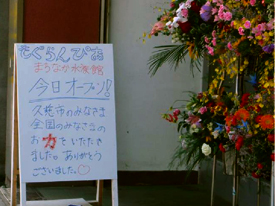 もぐらんぴあ
まちなか水族館
今日オープン!
久慈市のみなさま
全国のみなさまの
お力でいただき
ました。ありがとう
ございました。